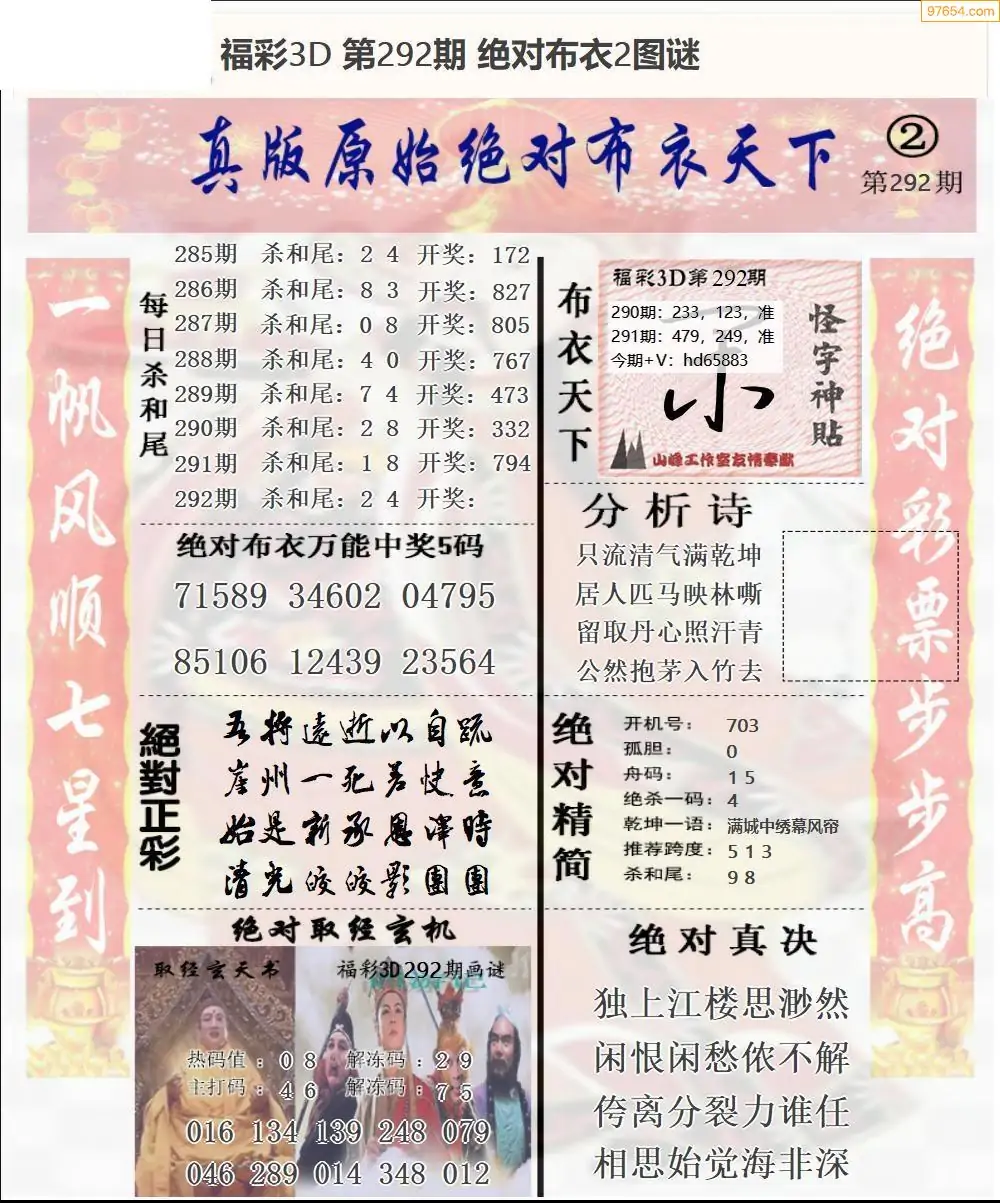 97654.com
福彩3D 第292期 绝对布衣2图谜
真版原始绝对布衣天下
②
第292期
一帆风顺七星到
每日杀和尾
285期 杀和尾：2 4 开奖：172
286期 杀和尾：8 3 开奖：827
287期 杀和尾：0 8 开奖：805
288期 杀和尾：4 0 开奖：767
289期 杀和尾：7 4 开奖：473
290期 杀和尾：2 8 开奖：332
291期 杀和尾：1 8 开奖：794
292期 杀和尾：2 4 开奖：
绝对布衣万能中奖5码
71589 34602 04795
85106 12439 23564
絕對正彩
吾将遠逝以自疏
崖州一死若快意
始是新承恩澤時
清光皎皎影團團
绝对取经玄机
取经玄天书
福彩3D292期画谜
热码值：0 8 解冻码：2 9
主打码：4 6 解冻码：7 5
016 134 139 248 079
046 289 014 348 012
布衣天下
福彩3D第292期
290期：233，123，准
291期：479，249，准
今期+V：hd65883
小
怪字神貼
山峰工作室友情奉献
分析诗
只流清气满乾坤
居人匹马映林嘶
留取丹心照汗青
公然抱茅入竹去
绝对精简
开机号：703
孤胆：0
舟码：1 5
绝杀一码：4
乾坤一语：满城中绣幕风帘
推荐跨度：5 1 3
杀和尾：9 8
绝对真决
独上江楼思渺然
闲恨闲愁侬不解
侉离分裂力谁任
相思始觉海非深
绝对彩票步步高